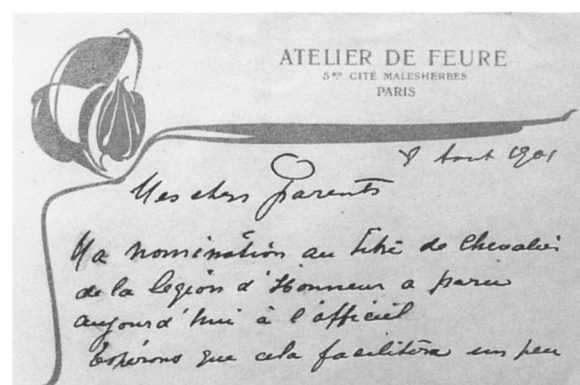 ATELIER DE FEURE
5 BIS CITÉ MALESHERBES
PARIS
8 Aout 1901
Mes chers parents
Ma nomination au titre de Chevalier
de la légion d'Honneur a paru
aujourd'hui à l'officiel
Espérons que cela facilitera un peu